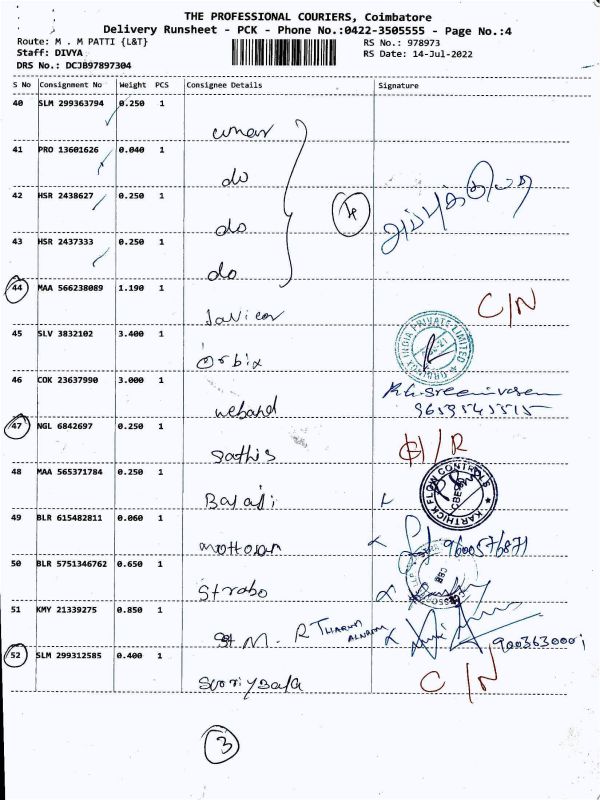 THE PROFESSIONAL COURIERS, Coimbatore
Delivery Runsheet - PCK - Phone No.:0422-3505555 - Page No.:4
Route: M . M PATTI {L&T} RS No.: 978973
Staff: DIVYA RS Date: 14-Jul-2022
DRS No.: DCJB97897304
S No Consignment No Weight PCS Consignee Details Signature
40 SLM 299363794 0.250 1
41 PRO 13601626 0.040 1
do
42 HSR 2438627 0.250 1
do
4
43 HSR 2437333 0.250 1
do
44 MAA 566238089 1.190 1
C/N
45 SLV 3832102 3.400 1
Orbix
46 COK 23637990 3.000 1
47 NGL 6842697 0.250 1
Sathis
48 MAA 565371784 0.250 1
Balaji
KARTHICK FLOW CONTROLS
49 BLR 615482811 0.060 1
9600576871
50 BLR 5751346762 0.650 1
Strabo
51 KMY 21339275 0.850 1
52 SLM 299312585 0.400 1
C/N
3